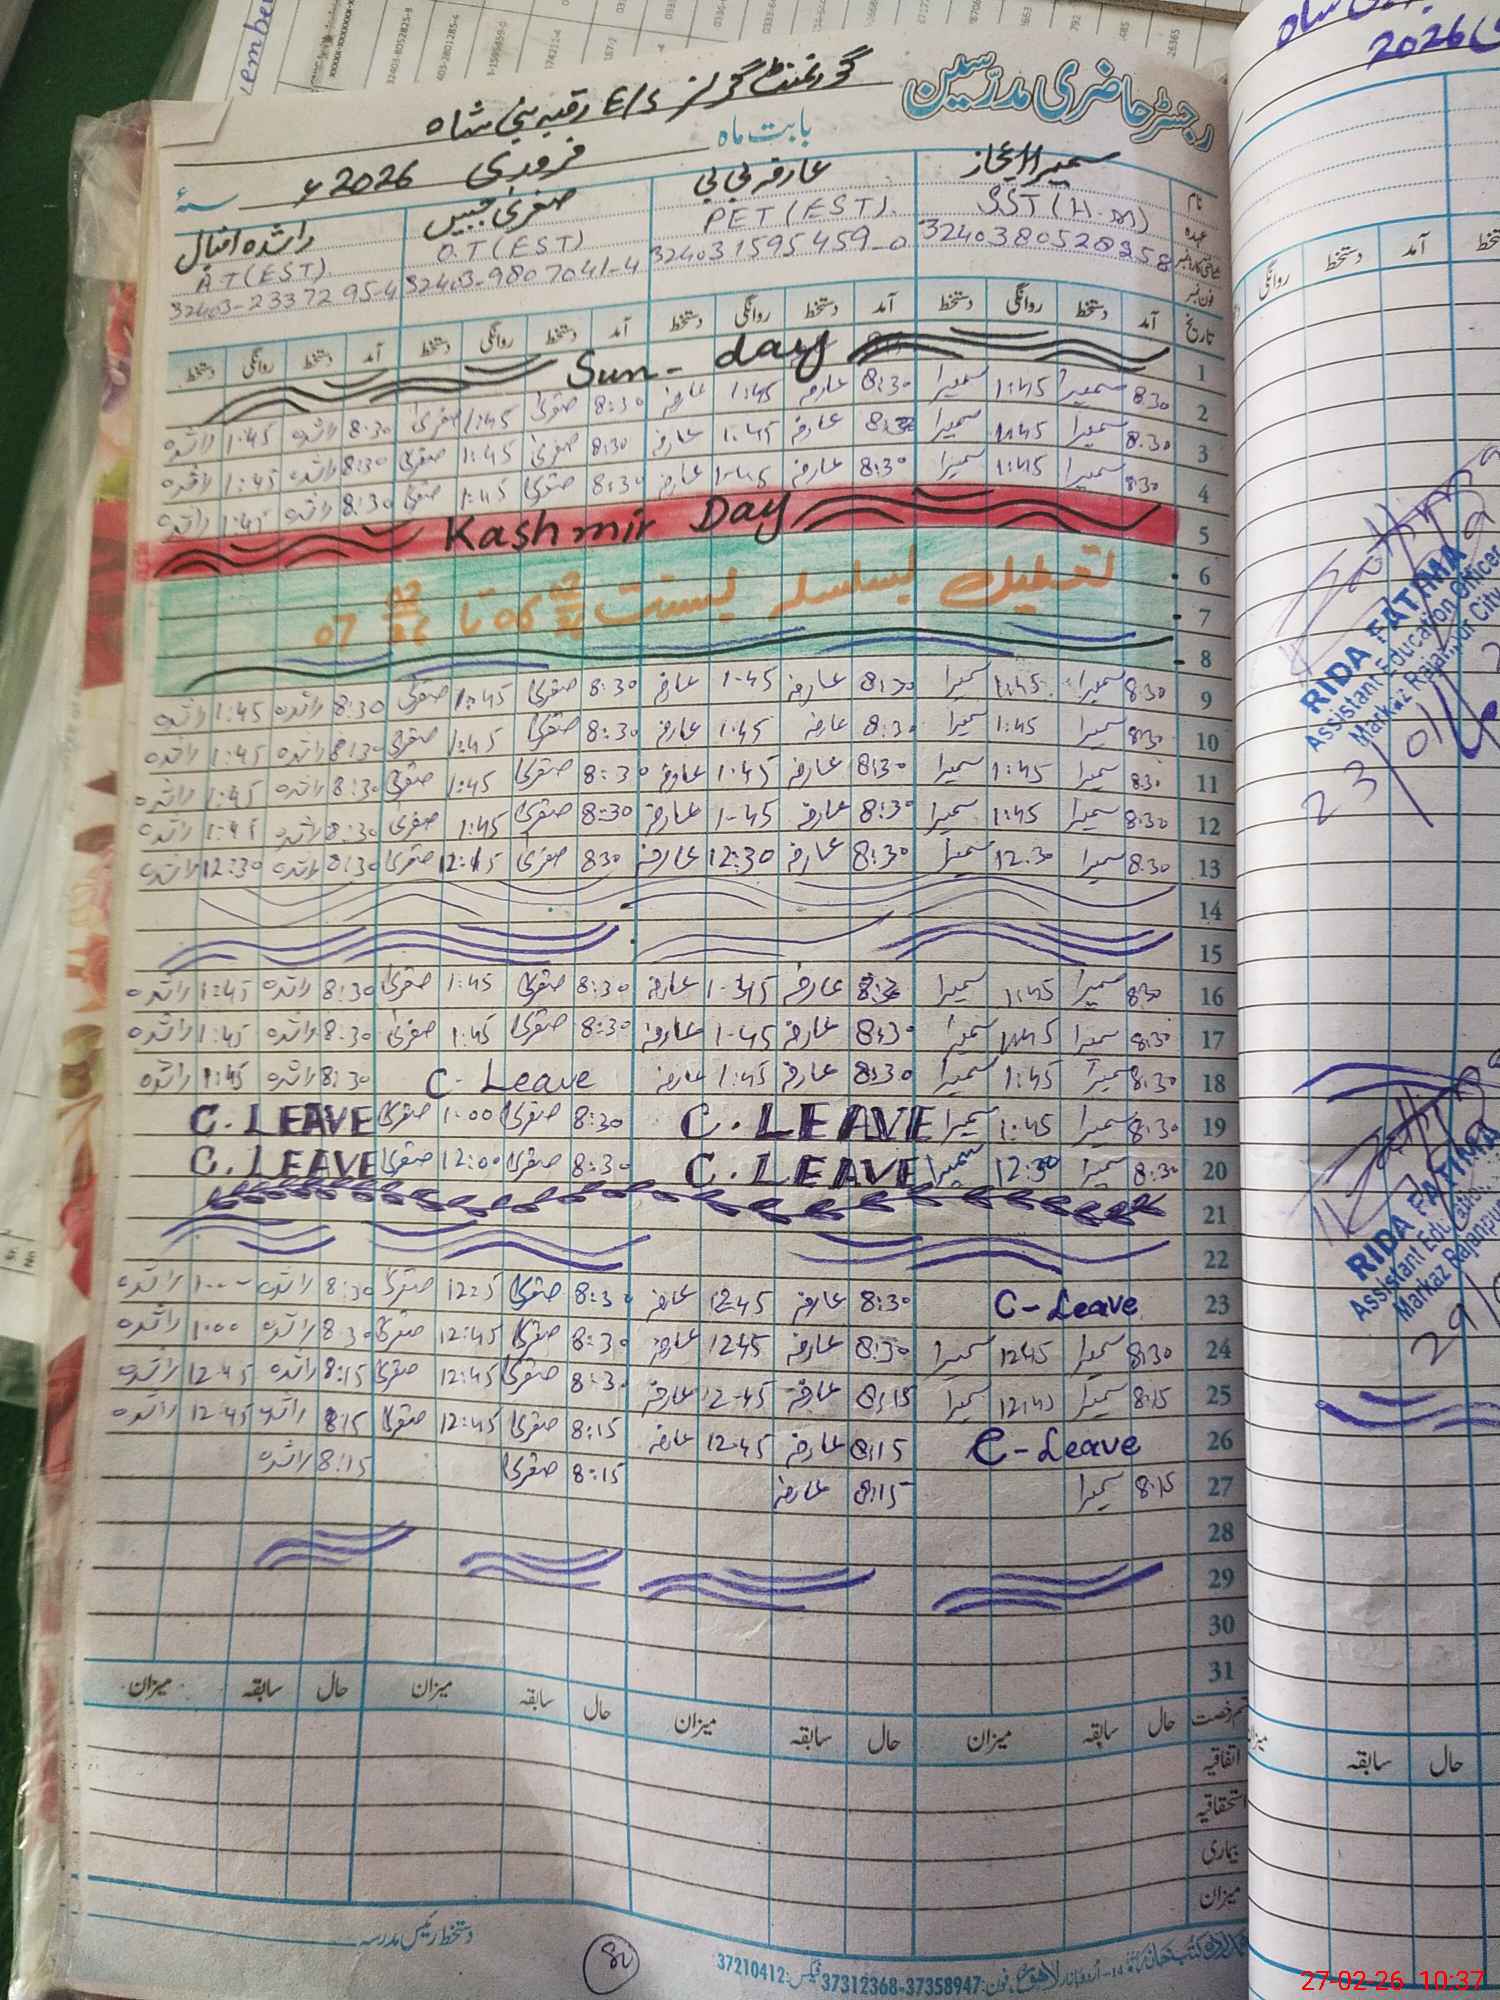 رجسٹر حاضری مدرسین
گورنمنٹ گرلز E/S رقبہ نبی شاہ
بابت ماہ فروری 2026ء سنہ
نام سمیرا اعجاز عارفہ بی بی صغریٰ راشدہ اقبال
عہدہ SST (H.M) PET (EST) O.T (EST) AT (EST)
شناختی کارڈ نمبر 3240380528258 324031595459-0 32403-9807041-4 32403-2337295-4
فون نمبر
تاریخ آمد دستخط روانگی دستخط آمد دستخط روانگی دستخط آمد دستخط روانگی دستخط آمد دستخط روانگی دستخط
1 Sun-day
2 8:30 سمیرا 1:45 سمیرا 8:30 عارفہ 1:45 عارفہ 8:30 صغریٰ 1:45 صغریٰ 8:30 راشدہ 1:45 راشدہ
3 8:30 سمیرا 1:45 سمیرا 8:30 عارفہ 1:45 عارفہ 8:30 صغریٰ 1:45 صغریٰ 8:30 راشدہ 1:45 راشدہ
4 8:30 سمیرا 1:45 سمیرا 8:30 عارفہ 1-45 عارفہ 8:30 صغریٰ 1:45 صغریٰ 8:30 راشدہ 1:45 راشدہ
5 Kashmir Day
6 تعطیلات بسلسلہ بسنت 06 تا 07
7
8
9 8:30 سمیرا 1:45 سمیرا 8:30 عارفہ 1-45 عارفہ 8:30 صغریٰ 1:45 صغریٰ 8:30 راشدہ 1:45 راشدہ
10 8:30 سمیرا 1:45 سمیرا 8:30 عارفہ 1:45 عارفہ 8:30 صغریٰ 1:45 صغریٰ 8:30 راشدہ 1:45 راشدہ
11 8:30 سمیرا 1:45 سمیرا 8:30 عارفہ 1:45 عارفہ 8:30 صغریٰ 1:45 صغریٰ 8:30 راشدہ 1:45 راشدہ
12 8:30 سمیرا 1:45 سمیرا 8:30 عارفہ 1-45 عارفہ 8:30 صغریٰ 1:45 صغریٰ 8:30 راشدہ 1:45 راشدہ
13 8:30 سمیرا 12:30 سمیرا 8:30 عارفہ 12:30 عارفہ 8:30 صغریٰ صغریٰ 8:30 راشدہ 12:30 راشدہ
14
15
16 8:30 سمیرا 1:45 سمیرا 8:30 عارفہ 1-45 عارفہ 8:30 صغریٰ 1:45 صغریٰ 8:30 راشدہ 1:45 راشدہ
17 8:30 سمیرا 1:45 سمیرا 8:30 عارفہ 1-45 عارفہ 8:30 صغریٰ 1:45 صغریٰ 8:30 راشدہ 1:45 راشدہ
18 8:30 سمیرا 1:45 سمیرا 8:30 عارفہ 1:45 عارفہ C-Leave 8:30 راشدہ 1:45 راشدہ
19 8:30 سمیرا 1:45 سمیرا C.LEAVE 8:30 صغریٰ 1:00 صغریٰ C.LEAVE
20 8:30 سمیرا 12:30 سمیرا C.LEAVE 8:30 صغریٰ 12:00 صغریٰ C.LEAVE
21
22
23 C-Leave 8:30 عارفہ 12:45 عارفہ 8:30 صغریٰ صغریٰ 8:30 راشدہ 1:00 راشدہ
24 8:30 سمیرا 1245 سمیرا 8:30 عارفہ 1245 عارفہ 8:30 صغریٰ 12:45 صغریٰ 8:30 راشدہ 1:00 راشدہ
25 8:15 سمیرا سمیرا 8:15 عارفہ 12-45 عارفہ 8:30 صغریٰ 12:45 صغریٰ 8:15 راشدہ 12-45 راشدہ
26 C-Leave 8:15 عارفہ 12-45 عارفہ 8:15 صغریٰ 12:45 صغریٰ 8:15 راشدہ 12:45 راشدہ
27 8:15 سمیرا 8:15 عارفہ 8:15 صغریٰ 8:15 راشدہ
28
29
30
31
قسم رخصت حال سابقہ میزان حال سابقہ میزان حال سابقہ میزان حال سابقہ میزان
اتفاقیہ
استحقاقیہ
بیماری
میزان
دستخط رئیس مدرسہ
اردو بازار لاہور، فون: 37358947-37312368 فیکس: 37210412
2026
روانگی دستخط آمد
RIDA FATIMA
Assistant Education Officer
Markaz Rajanpur City
23/01/
RIDA FATIMA
Assistant Education
Markaz Rajanpur
29/
میزان سابقہ حال
27-02-26 10:37